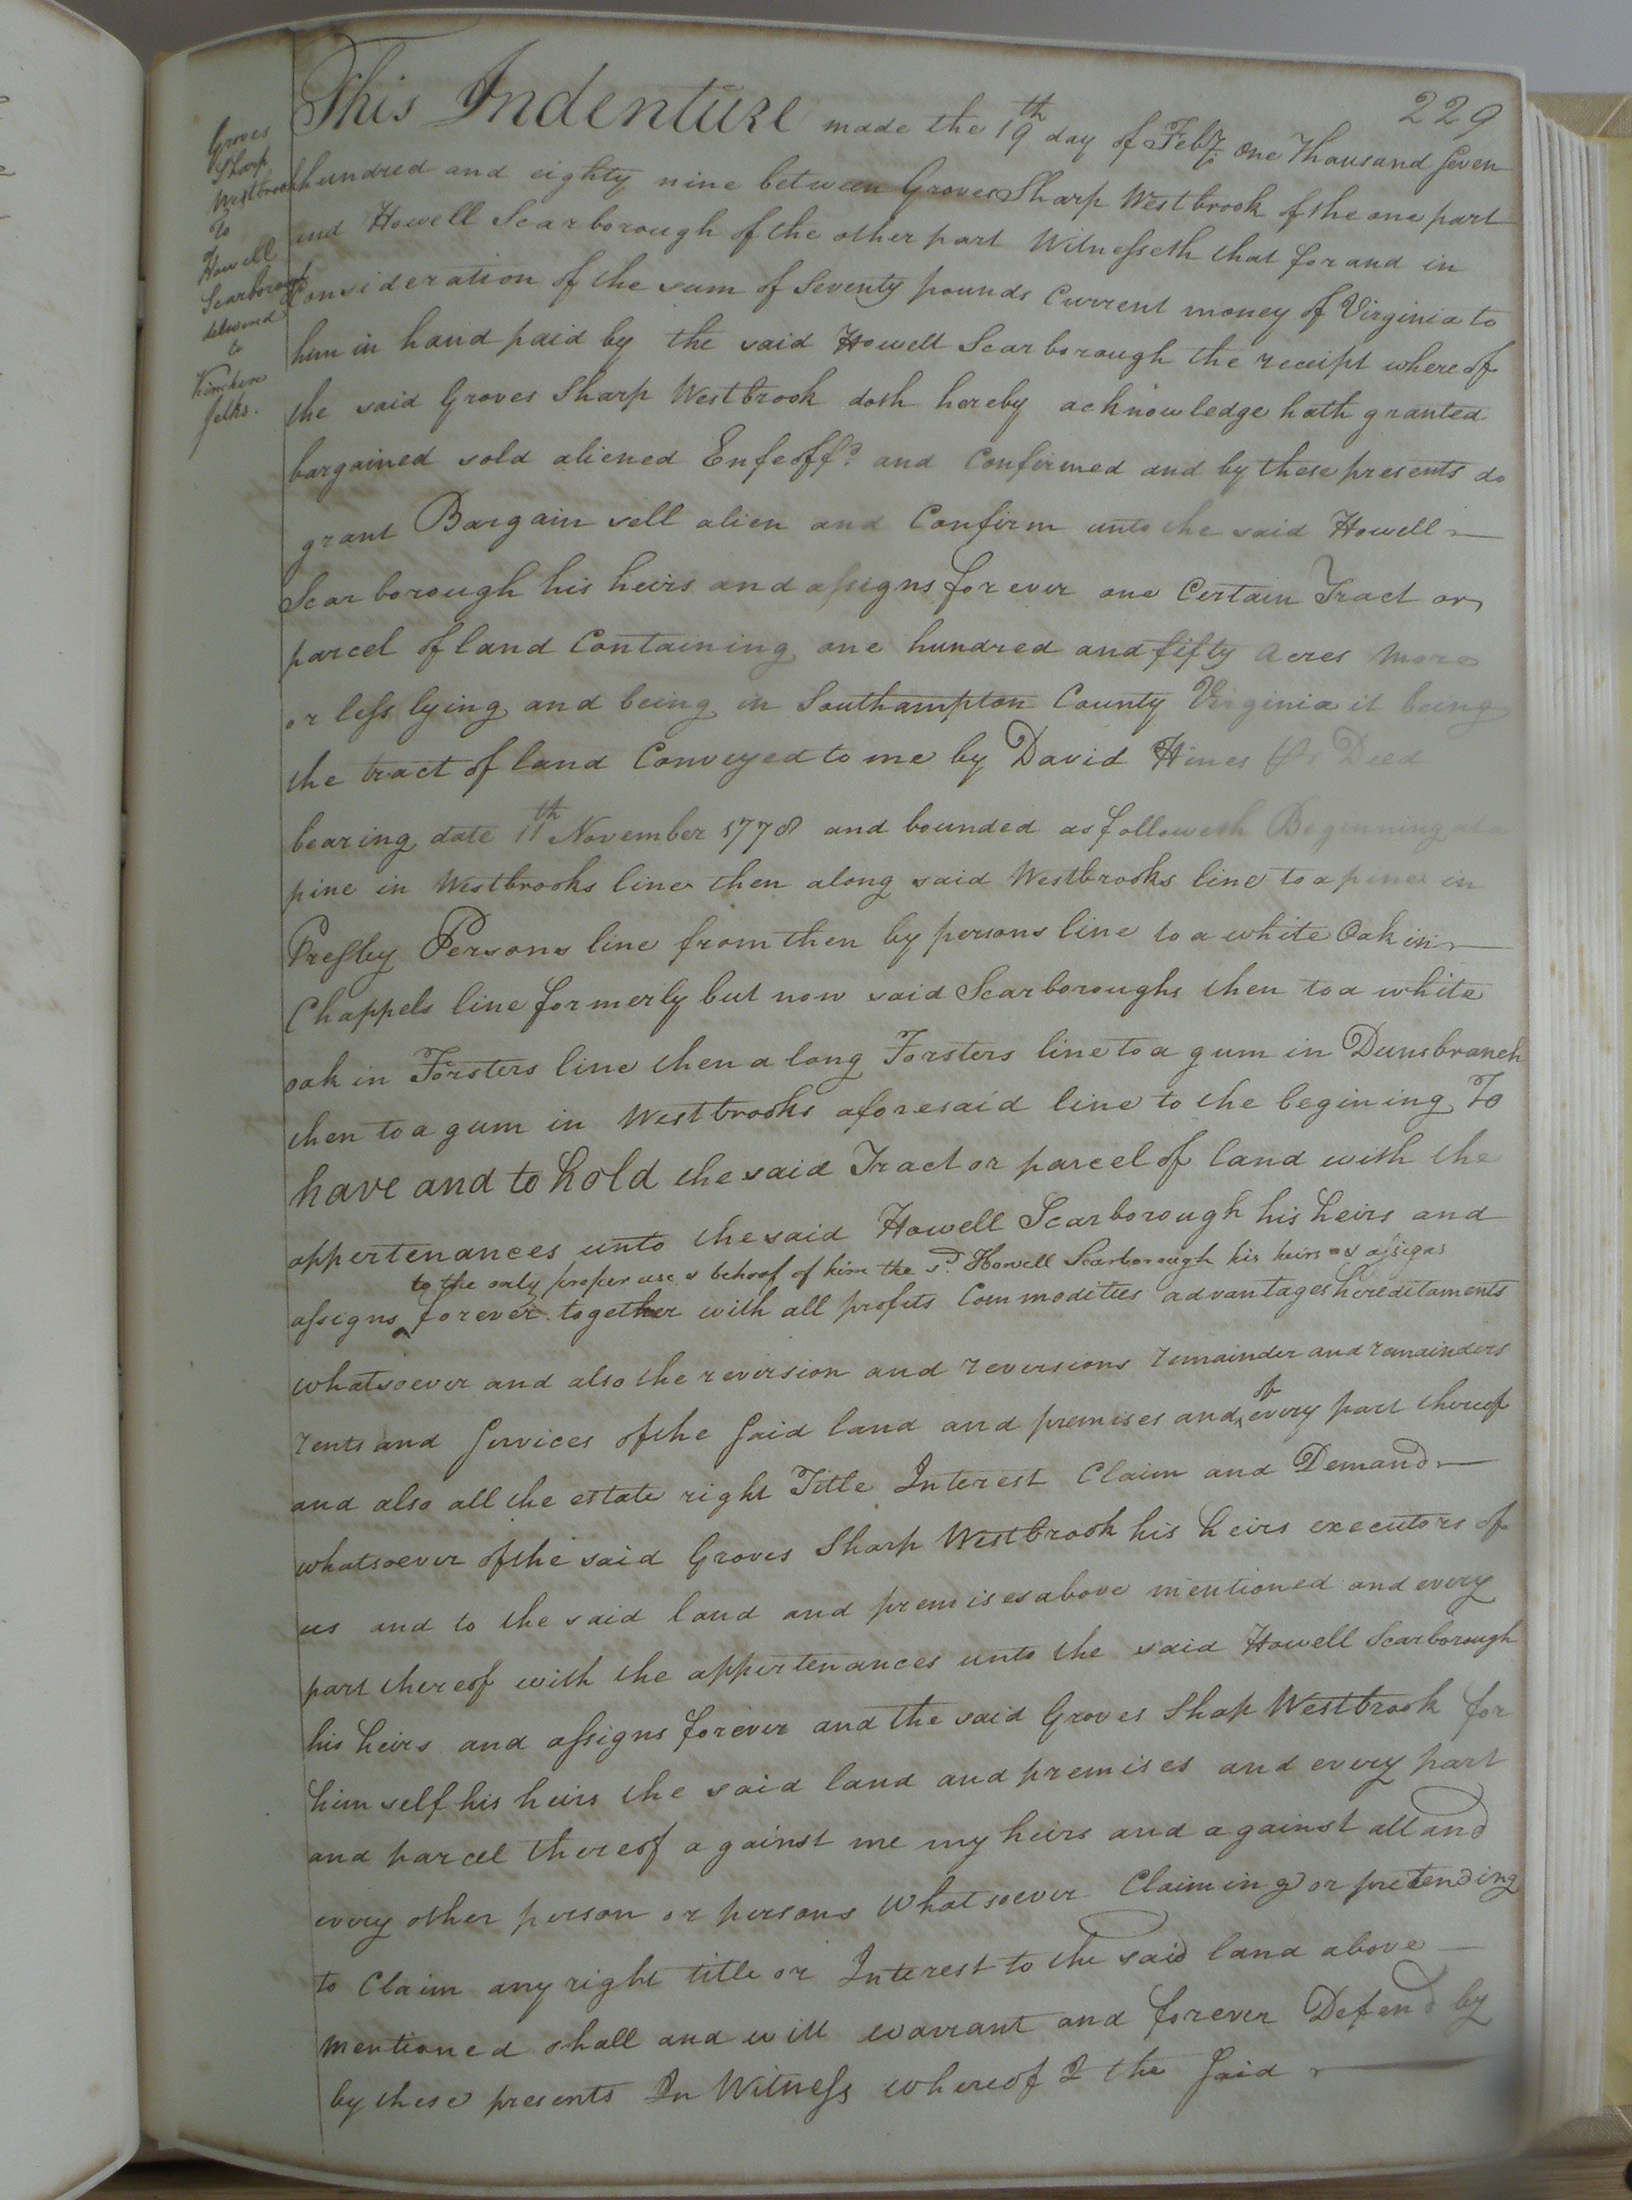 229
Groves
Sharp
Westbrook
To
Howell
Scarborough
delivered
to
Kinchen
felts.
This Indenture made the 19th day of Feby. One Thousand Seven
hundred and eighty nine between Groves Sharp Westbrook of the one part
and Howell Scarborough of the other part Witnesseth that for and in
Consideration of the sum of Seventy pounds Current money of Virginia to
him in hand paid by the said Howell Scarborough the receipt where of
the said Groves Sharp Westbrook doth hereby acknowledge hath granted
bargained sold aliened Enfeoffd. and Confirmed and by these presents do
grant Bargain sell alien and Confirm unto the said Howell
Scarborough his heirs and assigns for ever one Certain Tract or
parcel of land Containing one hundred and fifty acres more
or less lying and being in Southampton County Virginia it being
the tract of land Conveyed to me by David Hines Deed
bearing date 11th November 1778 and bounded as followeth Beginning at a
pine in Westbrooks line then along said Westbrooks line to a pine in
Presley Persons line from then by persons line to a white Oak in
Chappels line formerly but now said Scarboroughs then to a white
oak in Forsters line then a long Forsters line to a gum in Dunsbranch
then to a gum in Westbrooks aforesaid line to the begining To
have and to hold the said Tract or parcel of land with the
appertenances unto the said Howell Scarborough his heirs and
to the only proper use & behoof of him the sd. Howell Scarborough his heirs & assigns
assigns forever together with all profits Commodities advantages hereditaments
whatsoever and also the reversion and reversions remainder and remainders
rents and Services of the Said land and premises and of every part thereof
and also all the estate right Title Interest Claim and Demand
whatsoever of the said Groves Sharp Westbrook his heirs executors of
us and to the said land and premises above mentioned and every
part thereof with the appertenances unto the said Howell Scarborough
his heirs and assigns forever and the said Groves Shap Westbrook for
him self his heirs the said land and premises and every part
and parcel thereof against me my heirs and against all and
every other person or persons whatsoever Claiming or pretending
to Claim any right title or Interest to the said land above
mentioned shall and will warrant and forever Defend by
by these presents In Witness whereof I the Said